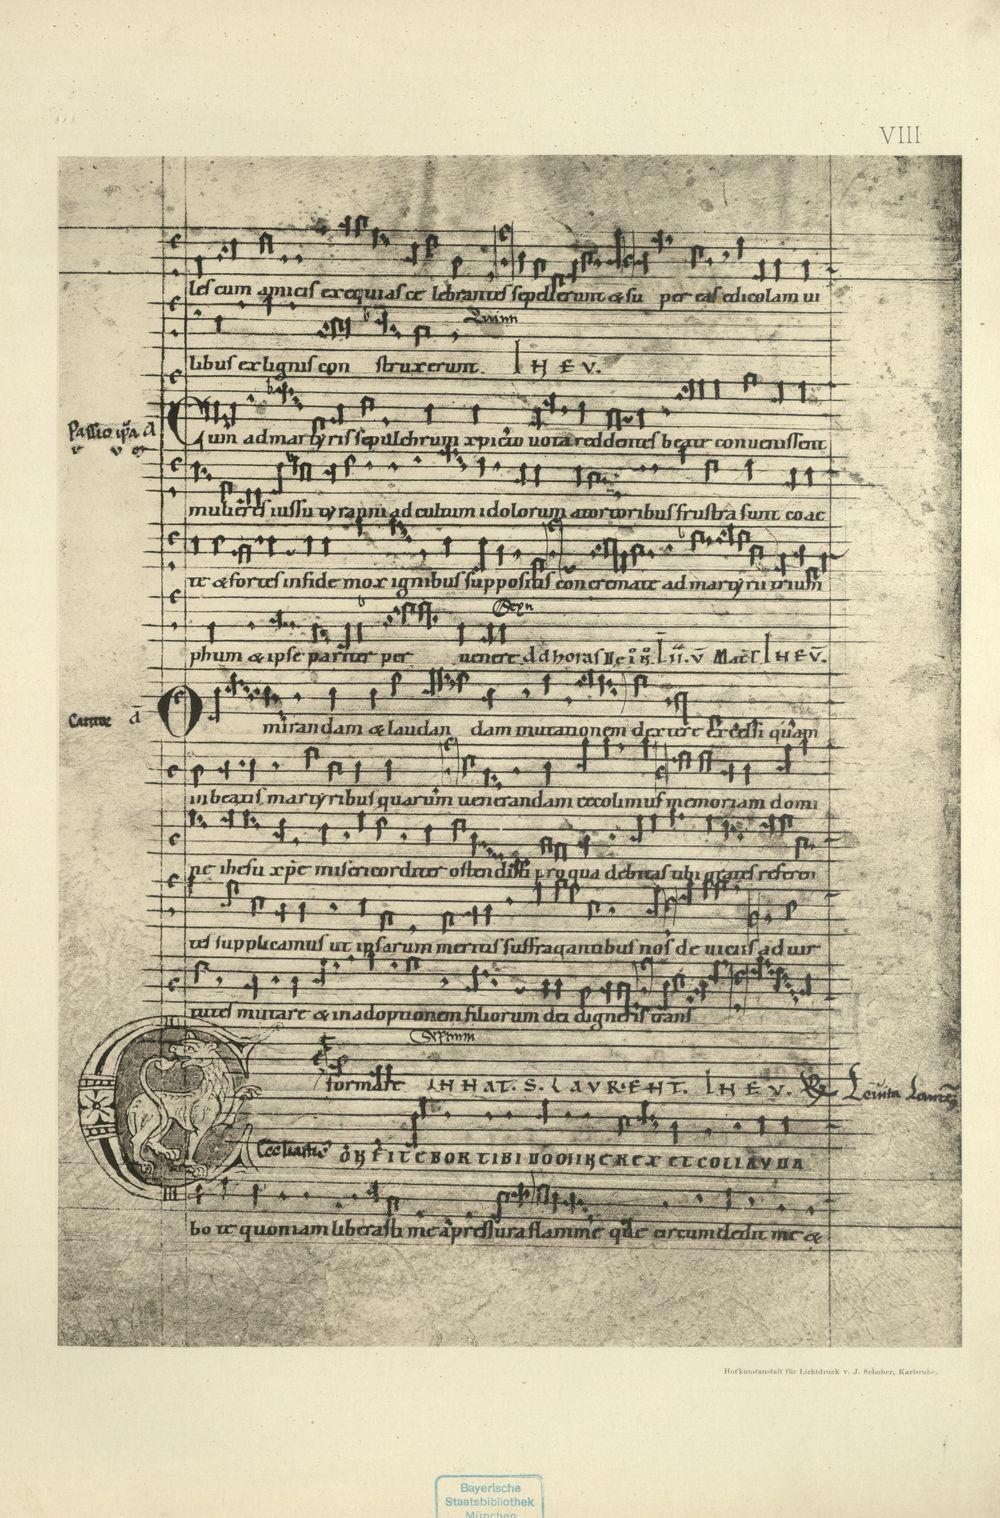 VIII
les cum amicis exequias ce lebrantes sepellerunt & su per eas edicolam ui
Quinti
libus ex lignis con struxerunt. I H E V.
Passio ip̄a ā
Cum ad martyris sepulchrum xpicto uota reddentes beate conuenissent
mulieres iussu tyranni ad cultum idolorum a tortoribus frustra sunt coac
te & fortes in fide mox ignibus suppositis concremate ad martyrii trium
phum & ipse pariter per uenere
ā
O mirandam & laudan dam mutationem dextere excelsi quam
in beatis martyribus quarum uenerandam recolimus memoriam domi
ne ihesu xp̄e misericorditer ostendisti pro qua debitas tibi grates referen
tes supplicamus ut ipsarum meritis suffragantibus nos de uiciis ad uir
tutes mutare & in adoptionem filiorum dei digneris trans
formare IN NAT. S. LAVRENT. I H E V. Leuita Laurē
CONFITEBOR TIBI DOMINE REX ET COLLAVDA
bo te quoniam liberasti me a pressura flamme que circumdedit me &
Hofkunstanstalt für Lichtdruck v. J. Schober, Karlsruhe.
Bayerische
Staatsbibliothek
München